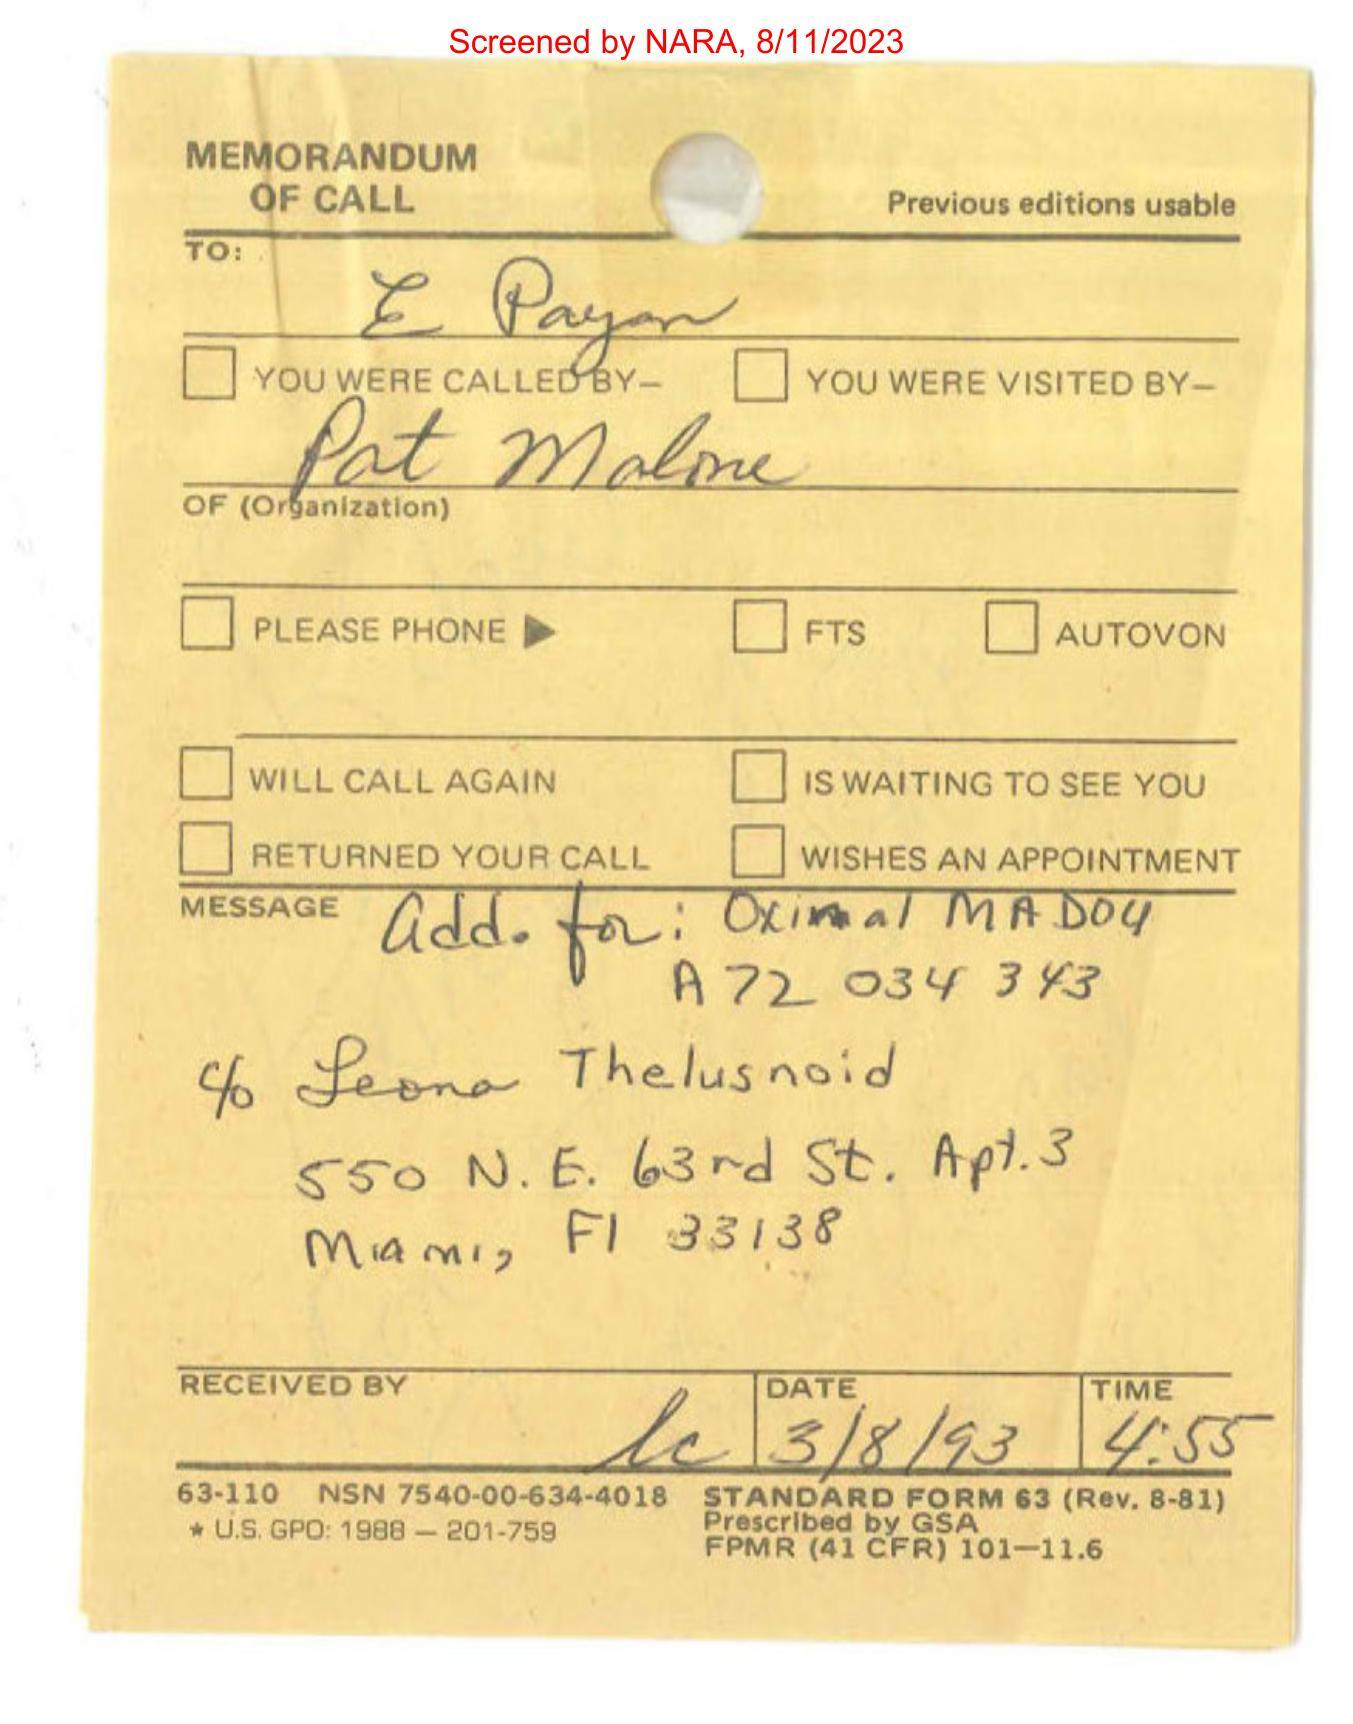 Screened by NARA, 8/11/2023
MEMORANDUM
OF CALL
Previous editions usable
TO:
E Payan
YOU WERE CALLED BY— YOU WERE VISITED BY—
Pat Malone
OF (Organization)
PLEASE PHONE ▶ FTS AUTOVON
WILL CALL AGAIN IS WAITING TO SEE YOU
RETURNED YOUR CALL WISHES AN APPOINTMENT
MESSAGE Add. for: Oximal MADOU
A 72 034 343
c/o Leona Thelusnoid
550 N.E. 63rd St. Apt. 3
Miami, Fl 33138
RECEIVED BY DATE TIME
lc 3/8/93 4:55
63-110 NSN 7540-00-634-4018 STANDARD FORM 63 (Rev. 8-81)
* U.S. GPO: 1988 — 201-759 Prescribed by GSA
FPMR (41 CFR) 101—11.6